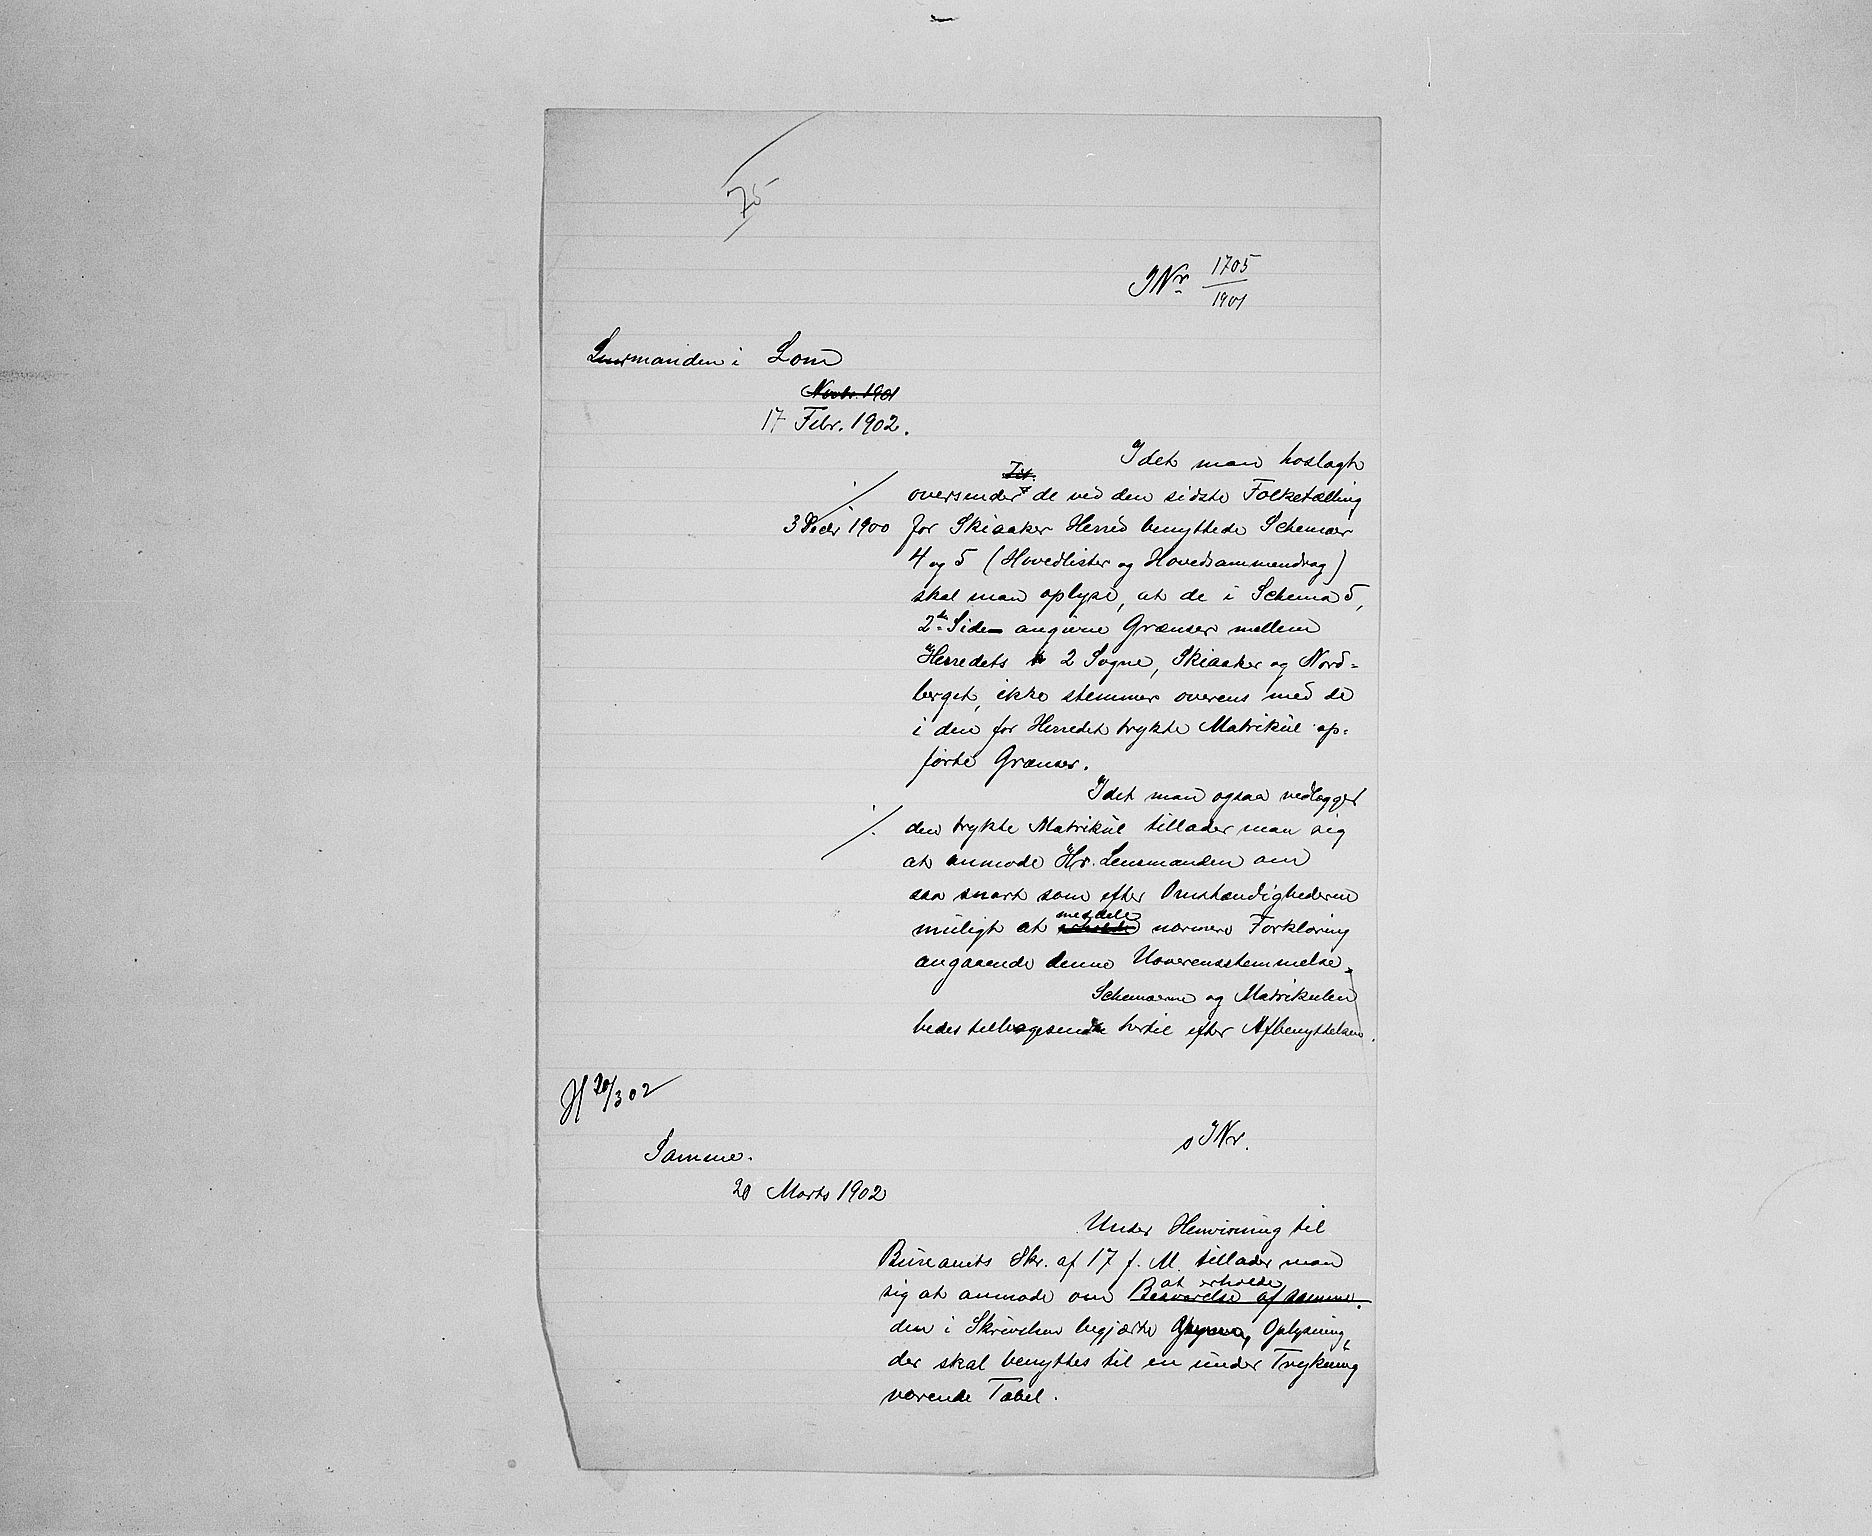 75
JNr 1705/1901
Lensmanden i Lom
Novbr. 1901
17 Febr. 1902.
Idet man hoslagt
oversender de ved den sidste Folketælling
3 Decbr 1900 for Skiaaker Herred benyttede Schemaer
4 og 5 (Hovedlister og Hovedsammendrag)
skal man oplyse, at de i Schema 5,
2den Side angivne Grænser mellem
Herredets 2 Sogne, Skiaaker og Nord-
berget, ikke stemmer overens med de
i den for Herredet trykte Matrikül op-
førte Grænser.
Idet man ogsaa vedlægger
den trykte Matrikül tillader man sig
at anmode Hr. Lensmanden om
saa snart som efter Omstændighederne
müligt at meddele nærmere Forklaring
angaaende denne Uoverensstemmelse.
Schemaerne og Matrikulen
bedes tilbagesendte hertil efter Afbenyttelsen.
H 20/3 02
s JNr.
Samme.
20 Marts 1902
Under Henvisning til
Büreauets Skr. af 17 f. M. tillader man
at erholde
sig at anmode om Besvarelse af samme.
den i Skrivelsen begjærte Oplysning,
der skal benyttes til en ünder Trykning
værende Tabel.